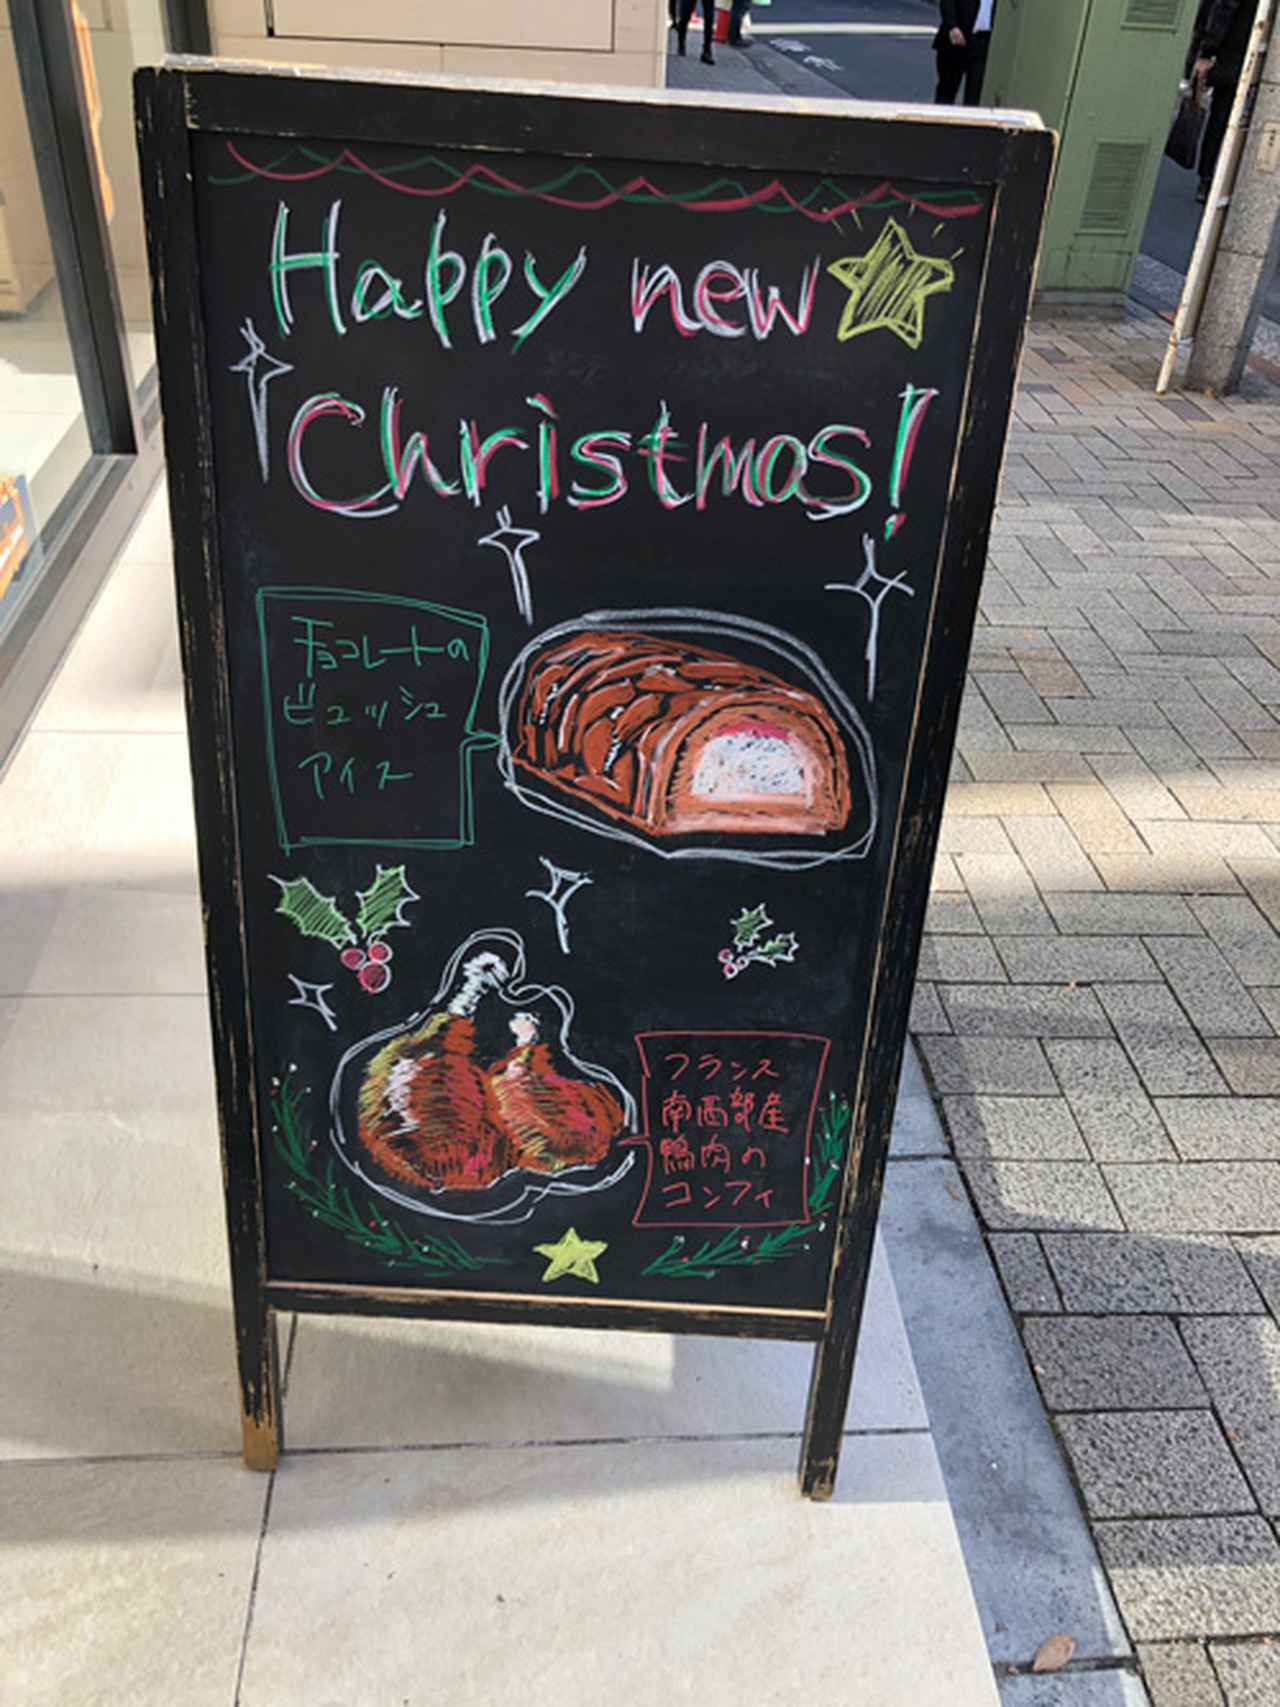 Happy new
Christmas!
チョコレートの
ビュッシュ
アイス
フランス
南西部産
鴨肉の
コンフィ